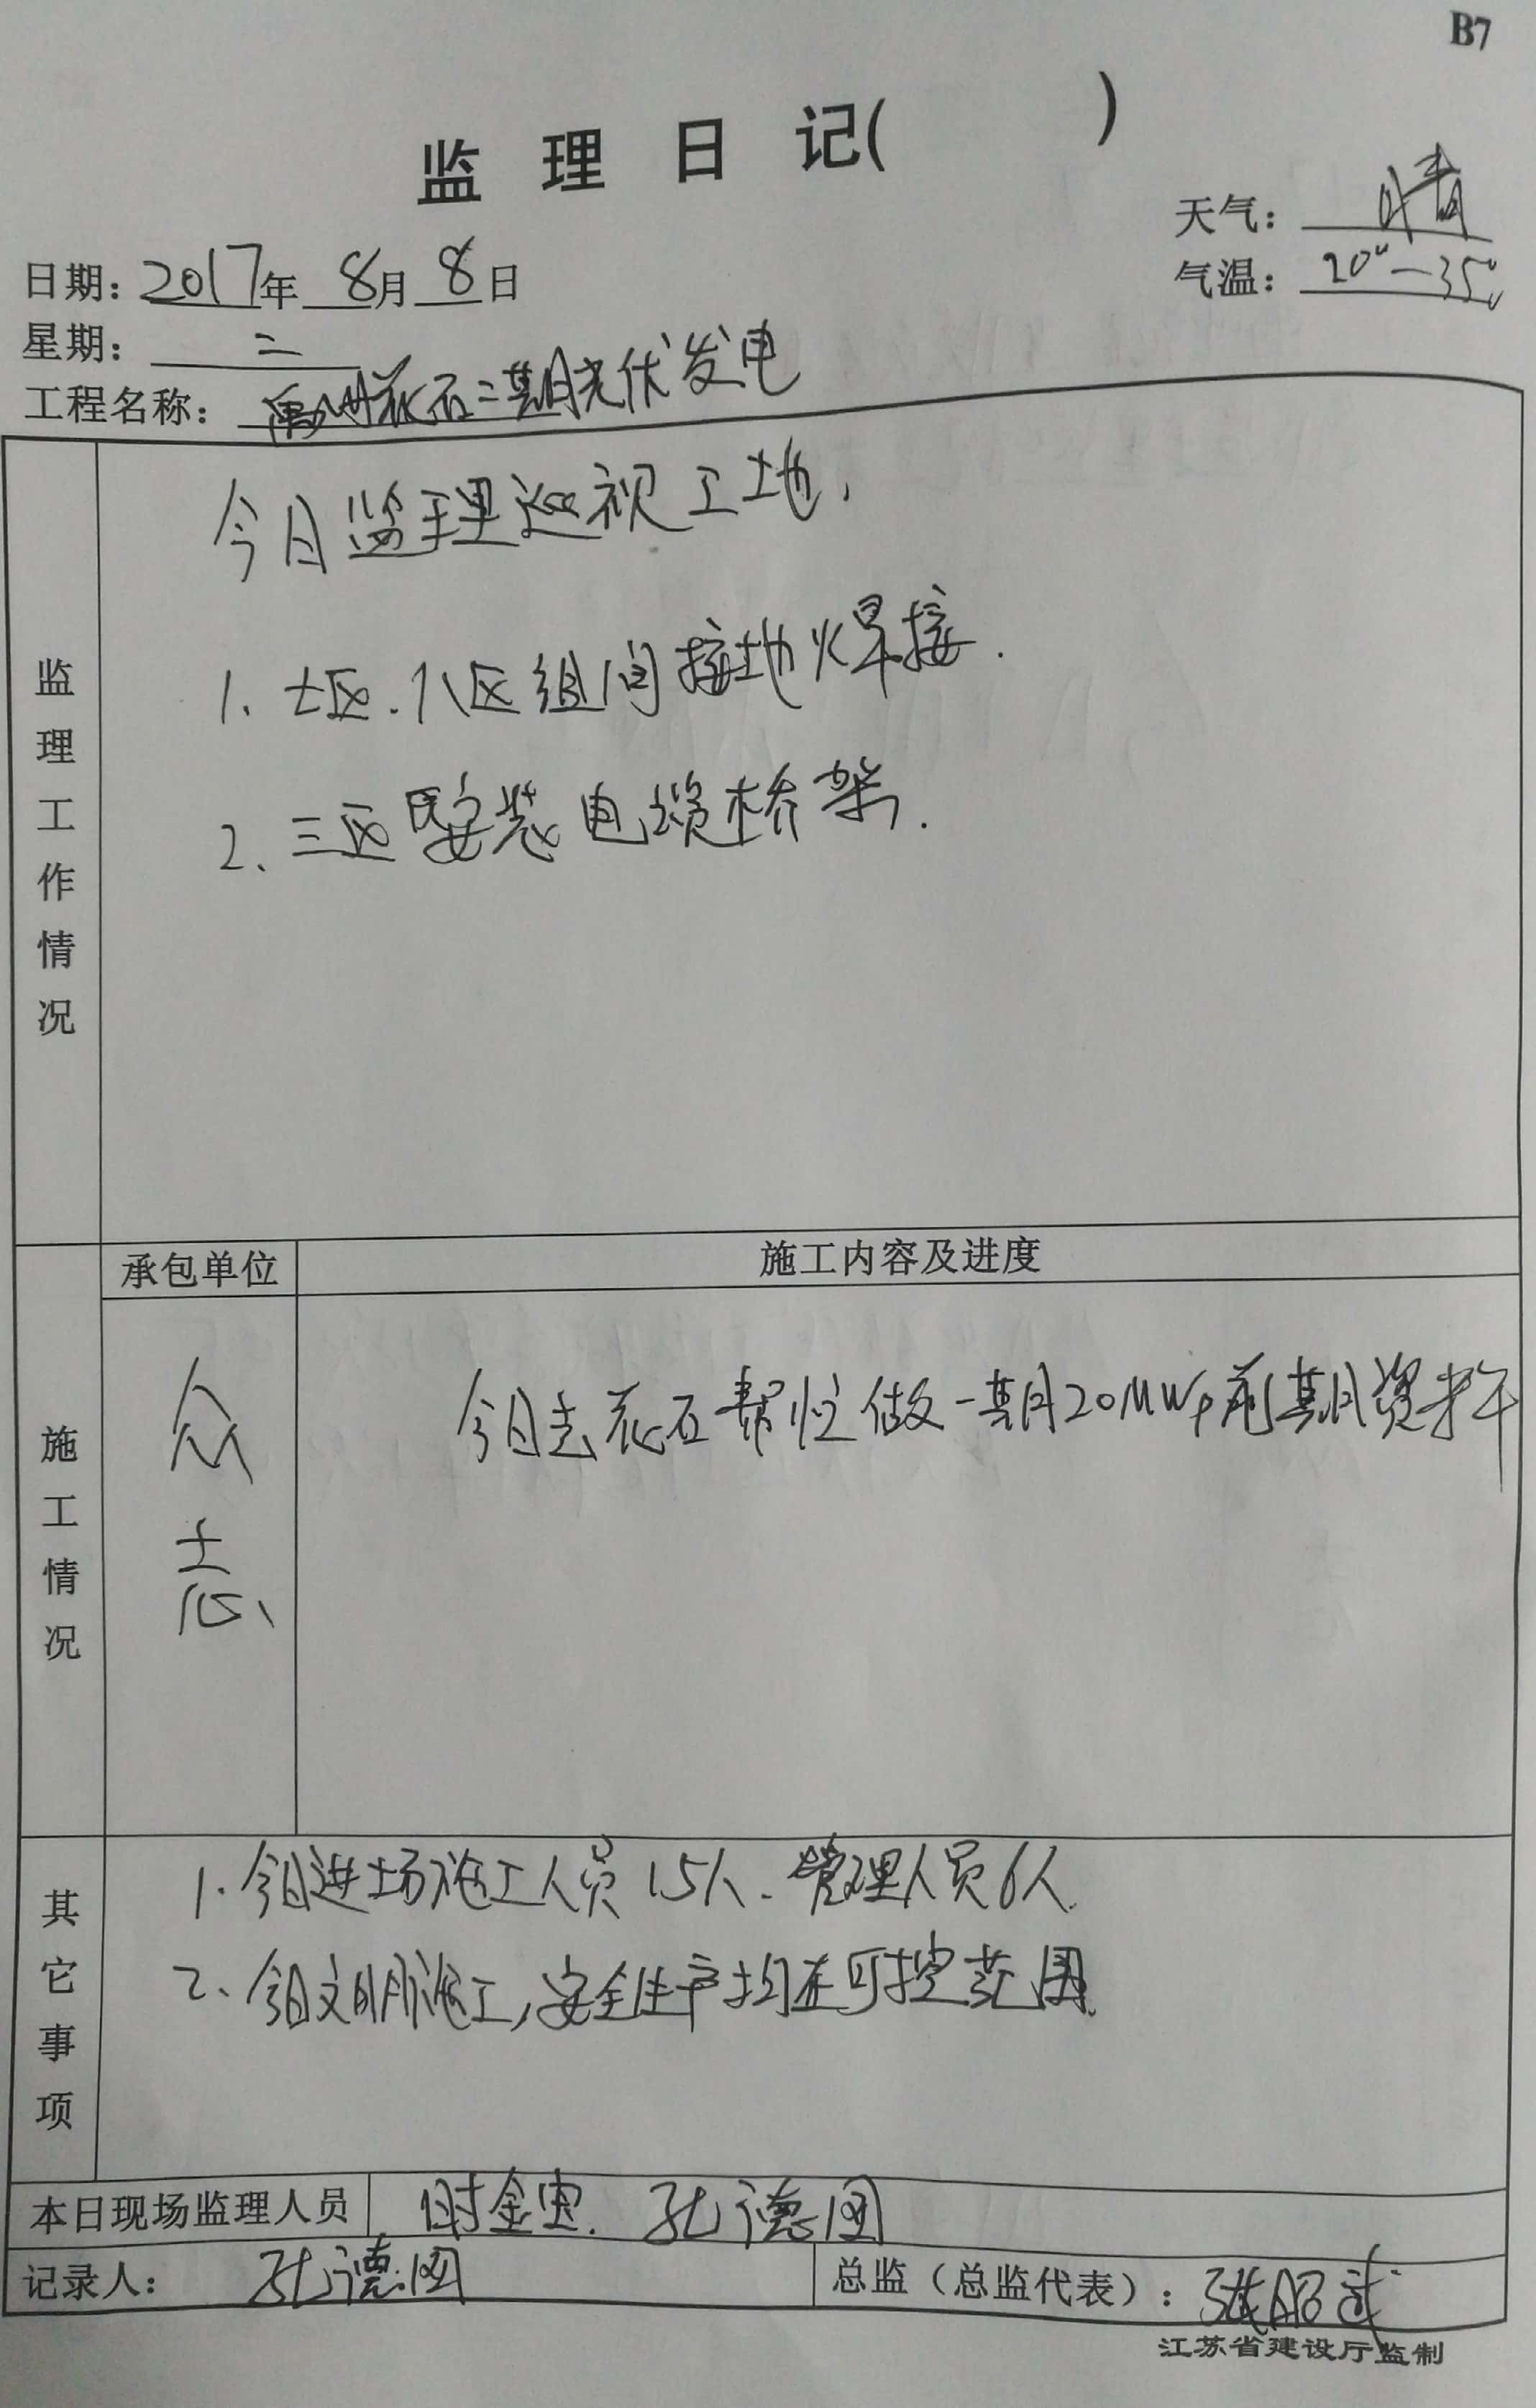 B7
监 理 日 记( )
天气: 晴
气温: 20°-35°
日期: 2017年 8月 8日
星期: 二
工程名称: 禹州花石二期光伏发电
监理工作情况
今日监理巡视工地,
1、七区.八区组间接地焊接.
2、三区安装电缆桥架.
承包单位 施工内容及进度
施工情况
众志
今日去花石帮忙做一期20MWp前期资料
其它事项
1.今日进场施工人员15人、管理人员6人.
2、今日文明施工,安全生产均在可控范围.
本日现场监理人员 时金忠. 孔德团
记录人: 孔德团 总监(总监代表): 张昭武
江苏省建设厅监制